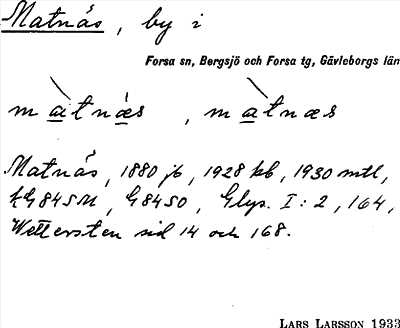 Matnäs, by i
Forsa sn, Bergsjö och Forsa tg, Gävleborgs län
màtnæ̀s, màtnæs
Matnäs, 1880 jb, 1928 kb, 1930 mtl,
kG845M, G84SO, Glys. I: 2, 164,
Wettersten sid 14 och 168.
LARS LARSSON 1933